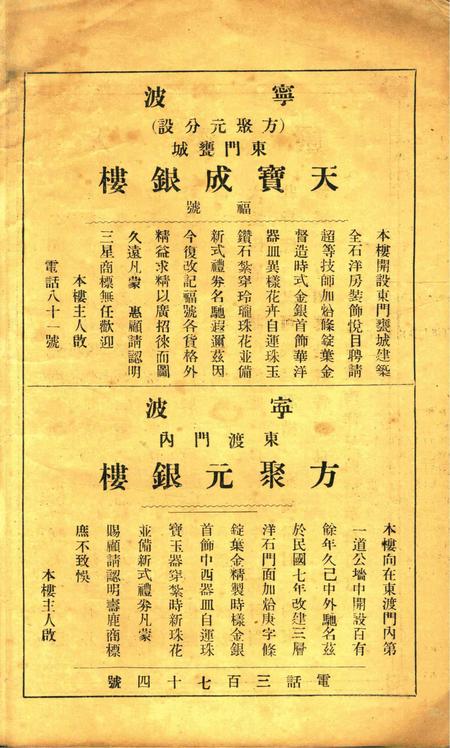 寧波
(方聚元分設)
東門甕城
天寶成銀樓
福號
本樓開設東門甕城建築
全石洋房裝飾悅目聘請
超等技師加炲條錠葉金
督造時式金銀首飾華洋
器皿異樣花卉自運珠玉
鑽石紮穿玲瓏珠花並備
新式禮劵名馳遐邇茲因
今復改記福號各貨格外
精益求精以廣招徠而圖
久遠凡蒙 惠顧請認明
三星商標無任歡迎
本樓主人啟
電話八十一號
寧波
東渡門內
方聚元銀樓
本樓向在東渡門內第
一道公墻中開設百有
餘年久已中外馳名茲
於民國七年改建三層
洋石門面加炲庚字條
錠葉金精製時樣金銀
首飾中西器皿自運珠
寶玉器穿紮時新珠花
並備新式禮劵凡蒙
賜顧請認明壽鹿商標
庶不致悞
本樓主人啟
電話三百七十四號